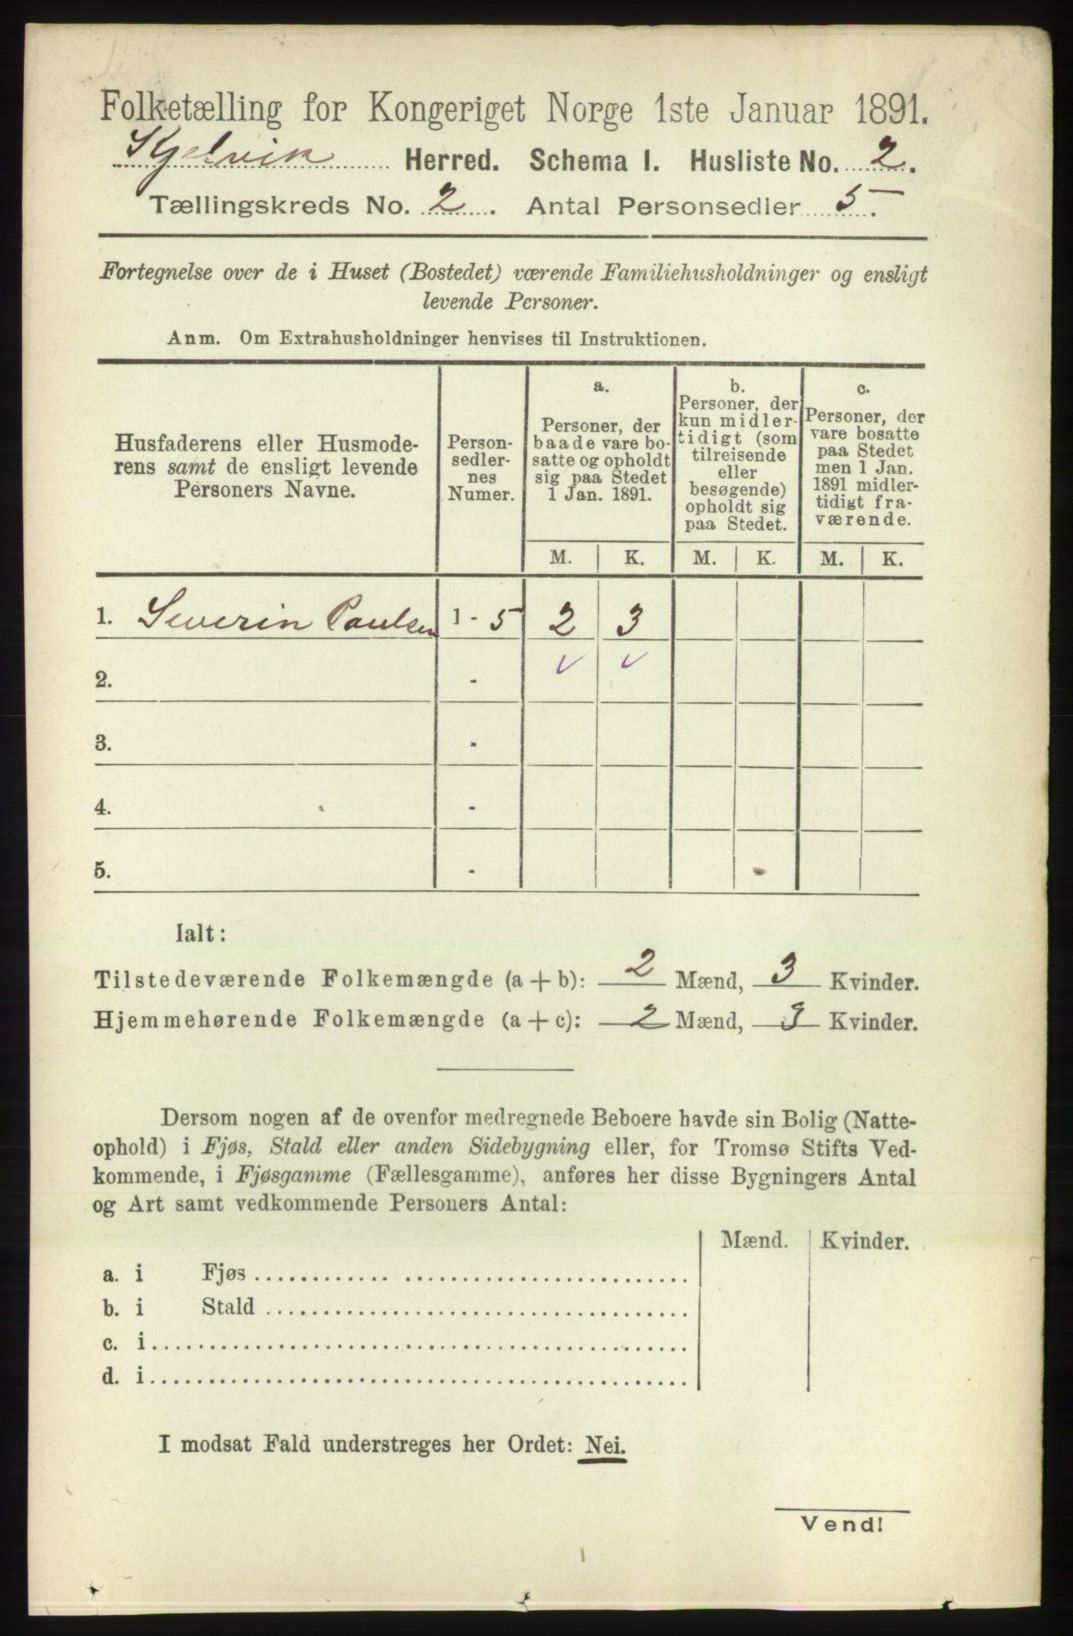 Folketælling for Kongeriget Norge 1ste Januar 1891.
Kjelvik Herred. Schema I. Husliste No. 2.
Tællingskreds No. 2. Antal Personsedler 5.
Fortegnelse over de i Huset (Bostedet) værende Familiehusholdninger og ensligt
levende Personer.
Anm. Om Extrahusholdninger henvises til Instruktionen.
Husfaderens eller Husmode-
rens samt de ensligt levende
Personers Navne.
Person-
sedler-
nes
Numer.
a.
Personer, der
baade vare bo-
satte og opholdt
sig paa Stedet
1 Jan. 1891.
b.
Personer, der
kun midler-
tidigt (som
tilreisende
eller
besøgende)
opholdt sig
paa Stedet.
c.
Personer, der
vare bosatte
paa Stedet
men 1 Jan.
1891 midler-
tidigt fra-
værende.
M. K. M. K. M. K.
1. Severin Paulsen 1 - 5 2 3
2. - v v
3. -
4. -
5. -
Ialt:
Tilstedeværende Folkemængde (a + b): 2 Mænd, 3 Kvinder.
Hjemmehørende Folkemængde (a + c): 2 Mænd, 3 Kvinder.
Dersom nogen af de ovenfor medregnede Beboere havde sin Bolig (Natte-
ophold) i Fjøs, Stald eller anden Sidebygning eller, for Tromsø Stifts Ved-
kommende, i Fjøsgamme (Fællesgamme), anføres her disse Bygningers Antal
og Art samt vedkommende Personers Antal:
Mænd. Kvinder.
a. i Fjøs
b. i Stald
c. i
d. i
I modsat Fald understreges her Ordet: Nei.
Vend!